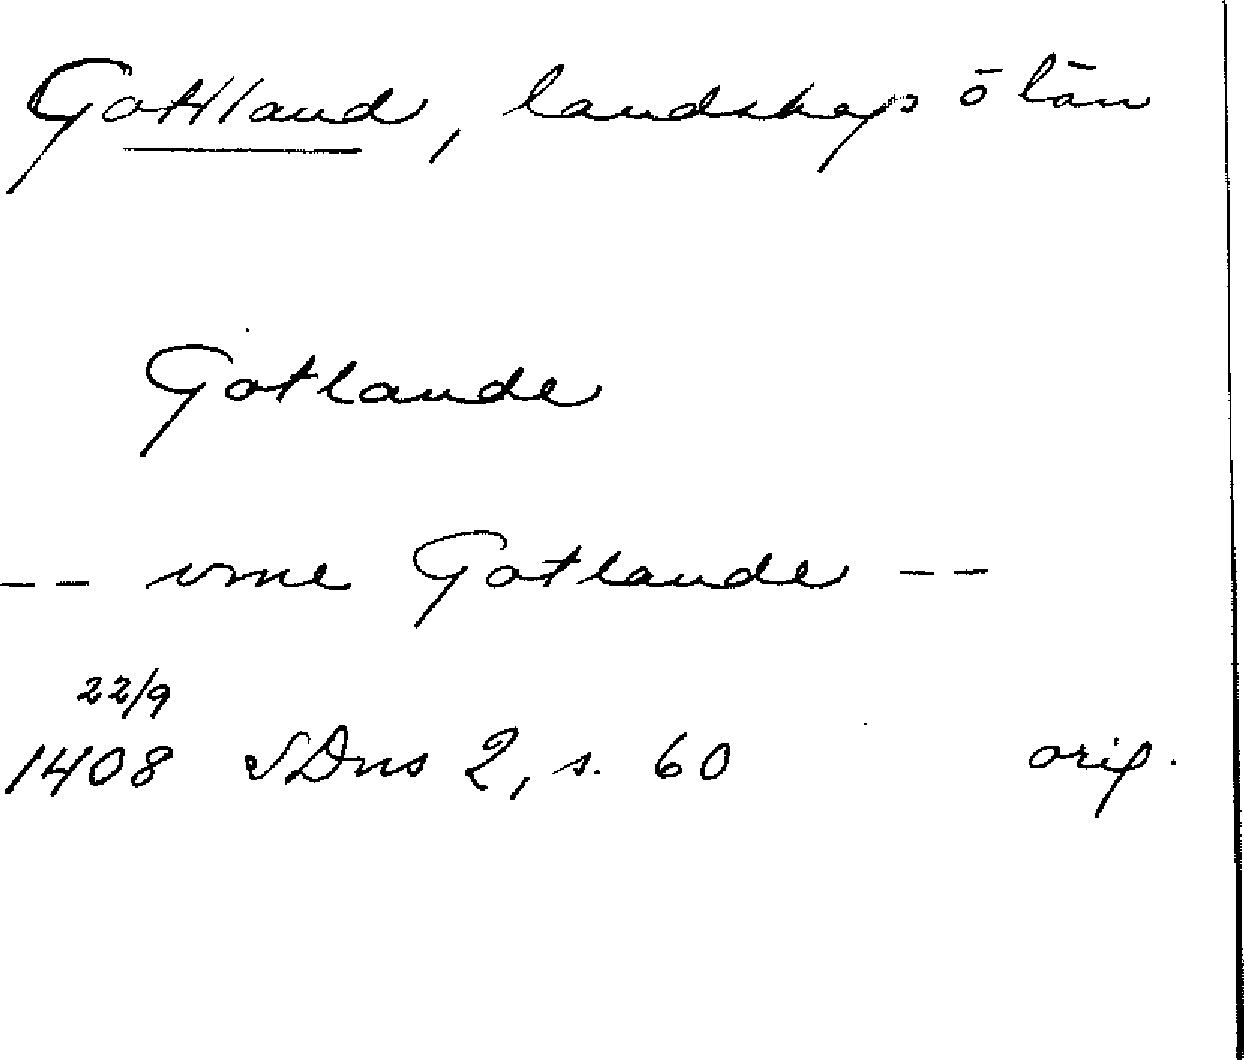 Gottland, landskap ō län
Gotlande
-- vme Gotlande --
22/9
1408 SDns 2, s. 60 orig.